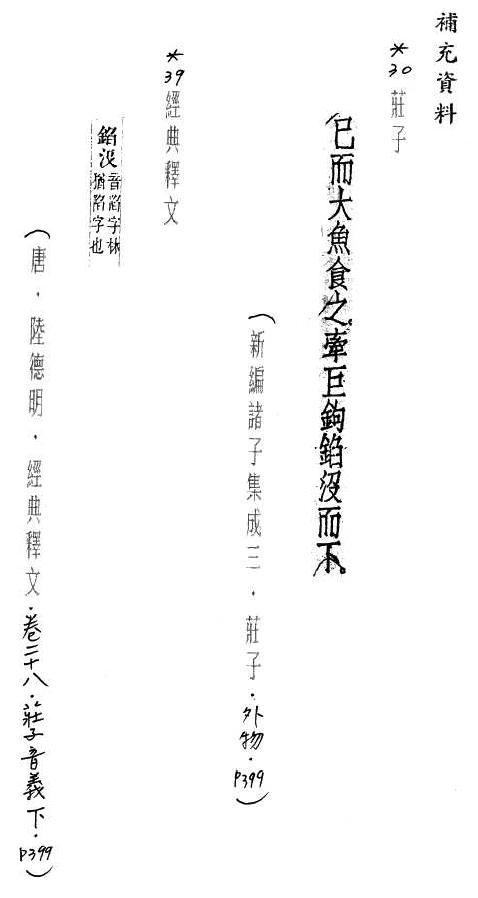 補充資料
*30 莊子
已而大魚食之。牽巨鉤錎沒而下。
(新編諸子集成三.莊子.外物.P399)
*39 經典釋文
錎沒音陷字林
猶陷字也
(唐.陸德明.經典釋文.卷二十八.莊子音義下.P399)